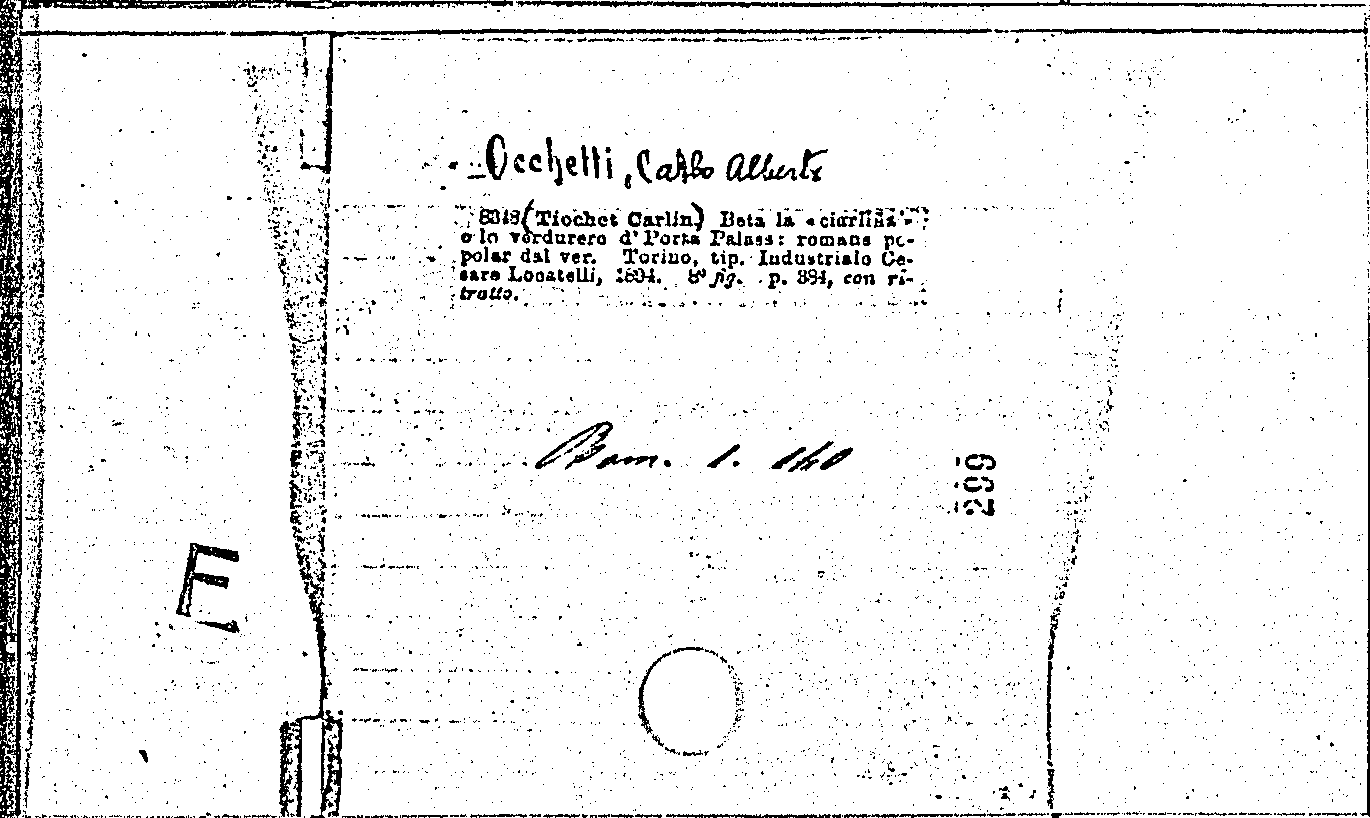 Occhetti, Carlo Alberto
8348 (Tiochet Carlin) Beta la «ciarlina»
o lo verdurere d' Porta Palass: romans po-
polar dal ver. Torino, tip. Industriale Ce-
sare Locatelli, 1894. 8º fig. p. 394, con ri-
tratto.
Bom. 1. 140
299
E